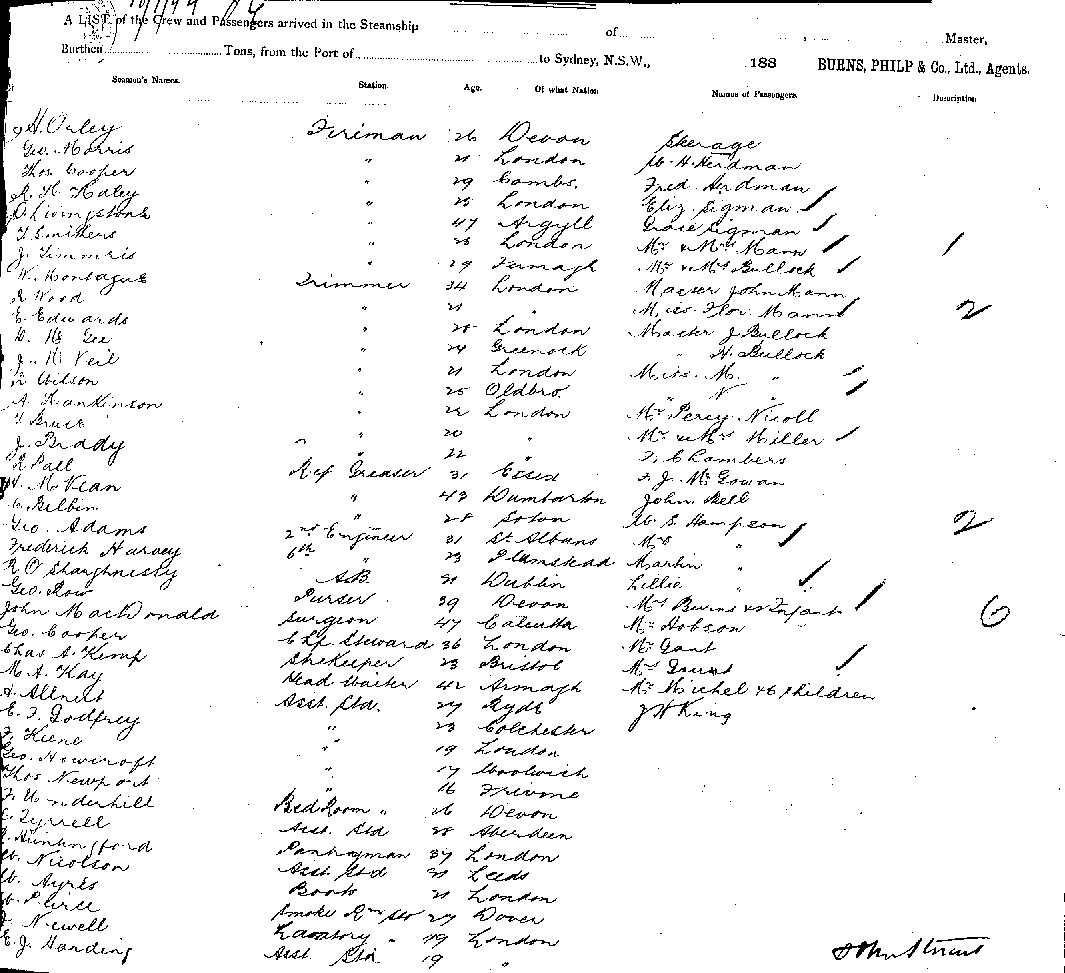 A LIST of the Crew and Passengers arrived in the Steamship of Master,
Burthen Tons, from the Port of to Sydney, N.S.W., 188 BURNS, PHILP & Co., Ltd., Agents.
Seaman's Names. Station. Age. Of what Nation Names of Passengers Description
H. Oxley Fireman 26 Devon Steerage
Geo. Morris " 21 London W. H. Herdman
Thos Cooper " 29 Cambs. Fred Herdman
A. H. Haley " London Eliz Sigman
D Livingstone " 47 Argyll Grace Sigman
T Smithers " London Mr & Mrs Mann 1
J. Timmris " 29 Mr & Mrs Bullock
W. Montague Trimmer 34 London Master John Mann
R Wood " 21 " Miss Flor. Mann 2
E. Edwards " London Master J Bullock
Mc Gee " 24 Greenock " H. Bullock
J. Mc Neil " 21 London Miss M. "
Wilson " 25 Oldbro. " N "
A. Hankinson " London Mr Percy Nicoll
T Bruce " 20 " Mr & Mrs Miller
J. Brady " " 22 " F. Chambers
R Pall Ref Greaser 31 Essex F. J. McGowan
McKean " 43 Dumbarton John Bell
Bilbin " 28 Soton W. S. Hampson 2
Geo. Adams 2nd Engineer 31 St Albans Mrs "
Frederick Harvey 6th " 23 Plumstead Martin "
R O'Shaughnesty A.B. 21 Dublin Lillie "
Geo. Row Purser 39 Devon Mrs Burns & Infant 6
John MacDonald Surgeon 47 Calcutta Mr Hobson
Geo. Cooper Ch. Steward 36 London Mr Gant
Chas A. Kemp Stkeeper 23 Bristol Mrs
M. A. Kay Head Waiter 42 Armagh Mr Michel & 6 children
Allnut Asst. Std. 27 Ryde J W King
E. F. Godfrey " 23 Colchester
Keene " 19 London
Geo. Howcroft " 17 Woolwich
Thos Newport " 16
F. Underhill Bed Room " 26 Devon
Tyrrell Asst. Std Aberdeen
Pantryman 37 London
W. Nicolson Asst Std 21 Leeds
W. Ayres Boots 21 London
W. Peirce Smoke Rm Std 27 Dover
Newell Lavatory " 19 London
E. J. Harding Asst. Std 19 "